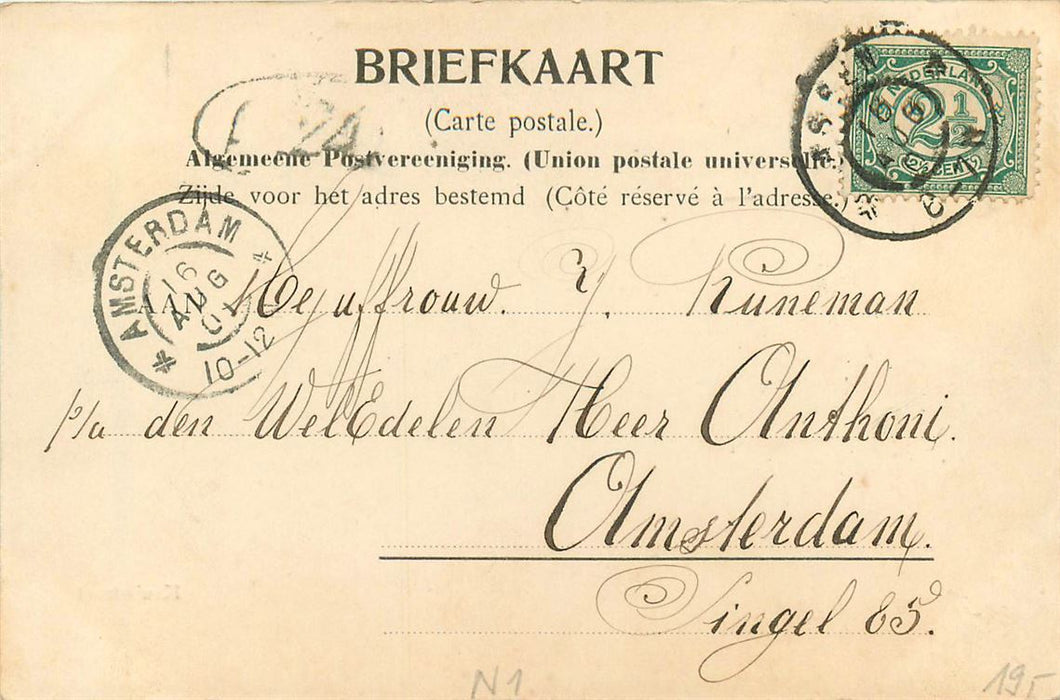 BRIEFKAART
(Carte postale.)
Algemeene Postvereeniging. (Union postale universelle.)
Zijde voor het adres bestemd (Côté réservé à l'adresse.)
NEDERLAND
2 1/2
CENT
AMSTERDAM
16
AUG
10-12
AAN Mejuffrouw. Y. Kuneman
p/a den WelEdelen Heer Anthoni.
Amsterdam.
Singel 85.
N1
19,-